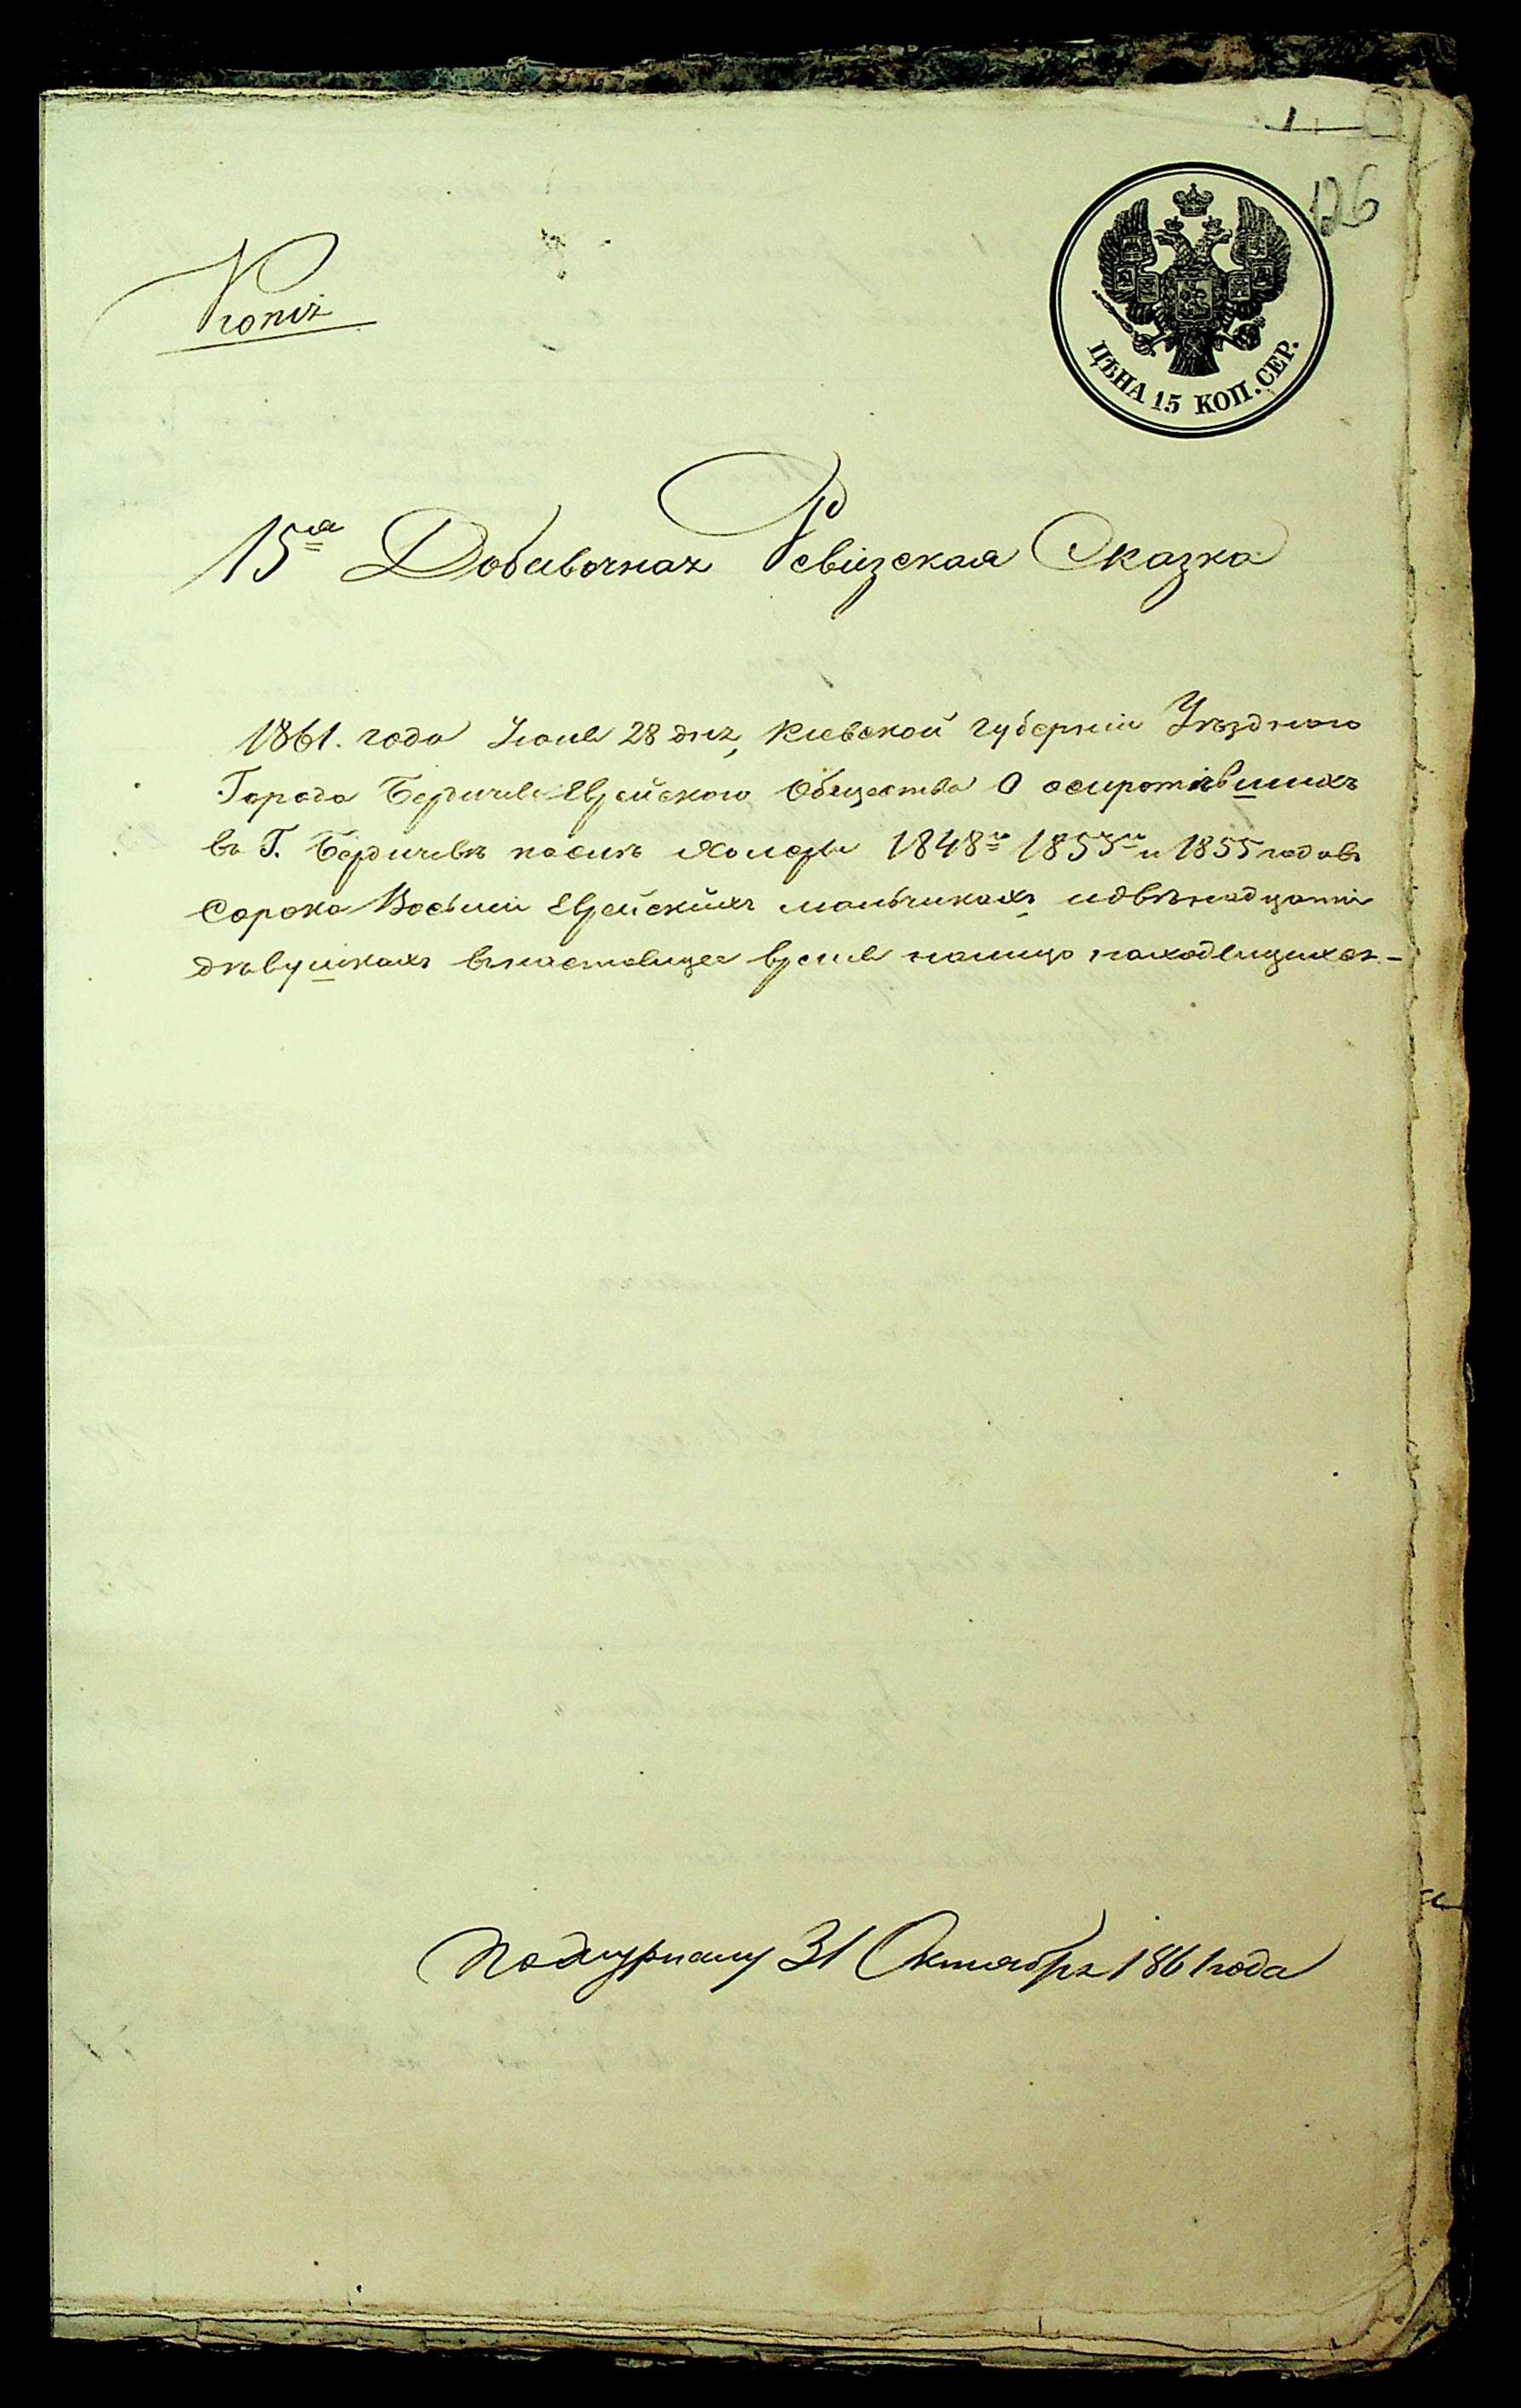 1
126
Копія
ЦѢНА 15 КОП. СЕР.
15ая Добавочная Ревизская Сказка
1861. года Іюня 28 дня, Киевской Губерніи Уѣзднаго
Города Бердичева Еврейского Общества О осиротѣвшихъ
въ Г. Бердичевѣ послѣ Холеры 1848го 1853го и 1855 годовъ
Сорока Восьми Еврейскихъ мальчикахъ и двѣнадцати
дѣвушкахъ въ настоящее время налицо находящихся. –
31 Октября 1861 года